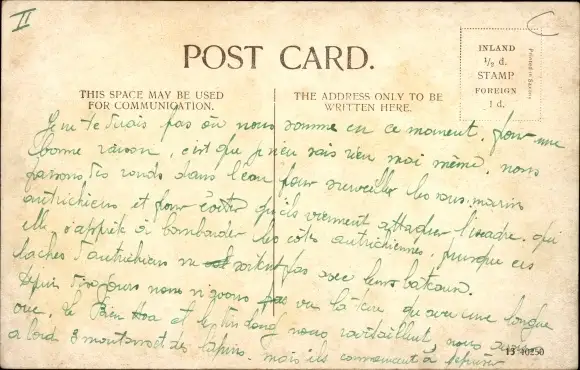 II
POST CARD.
THIS SPACE MAY BE USED
FOR COMMUNICATION.
THE ADDRESS ONLY TO BE
WRITTEN HERE.
INLAND
½ d.
STAMP
FOREIGN
1 d.
Printed in Saxony
Je ne te dirais pas où nous somme en ce moment. pour une
bonne raison, c'est que je n'en sais rien moi même. nous
faisons des ronds dans l'eau pour surveiller les sous-marins
autrichiens et pour éviter qu'ils viennent attaquer l'escadre. qui
elle s'apprête à bombarder les côtes autrichiennes, puisque ces
laches d'autrichiens ne sortent pas avec leurs bateaux.
Depuis dix jours nous n'avons pas vu la terre, qu'avec une longue
vue, le Bien Hoa et le nous ravitaillent, nous avons
a bord 3 moutons et des lapins. mais ils commencent à
13 40250